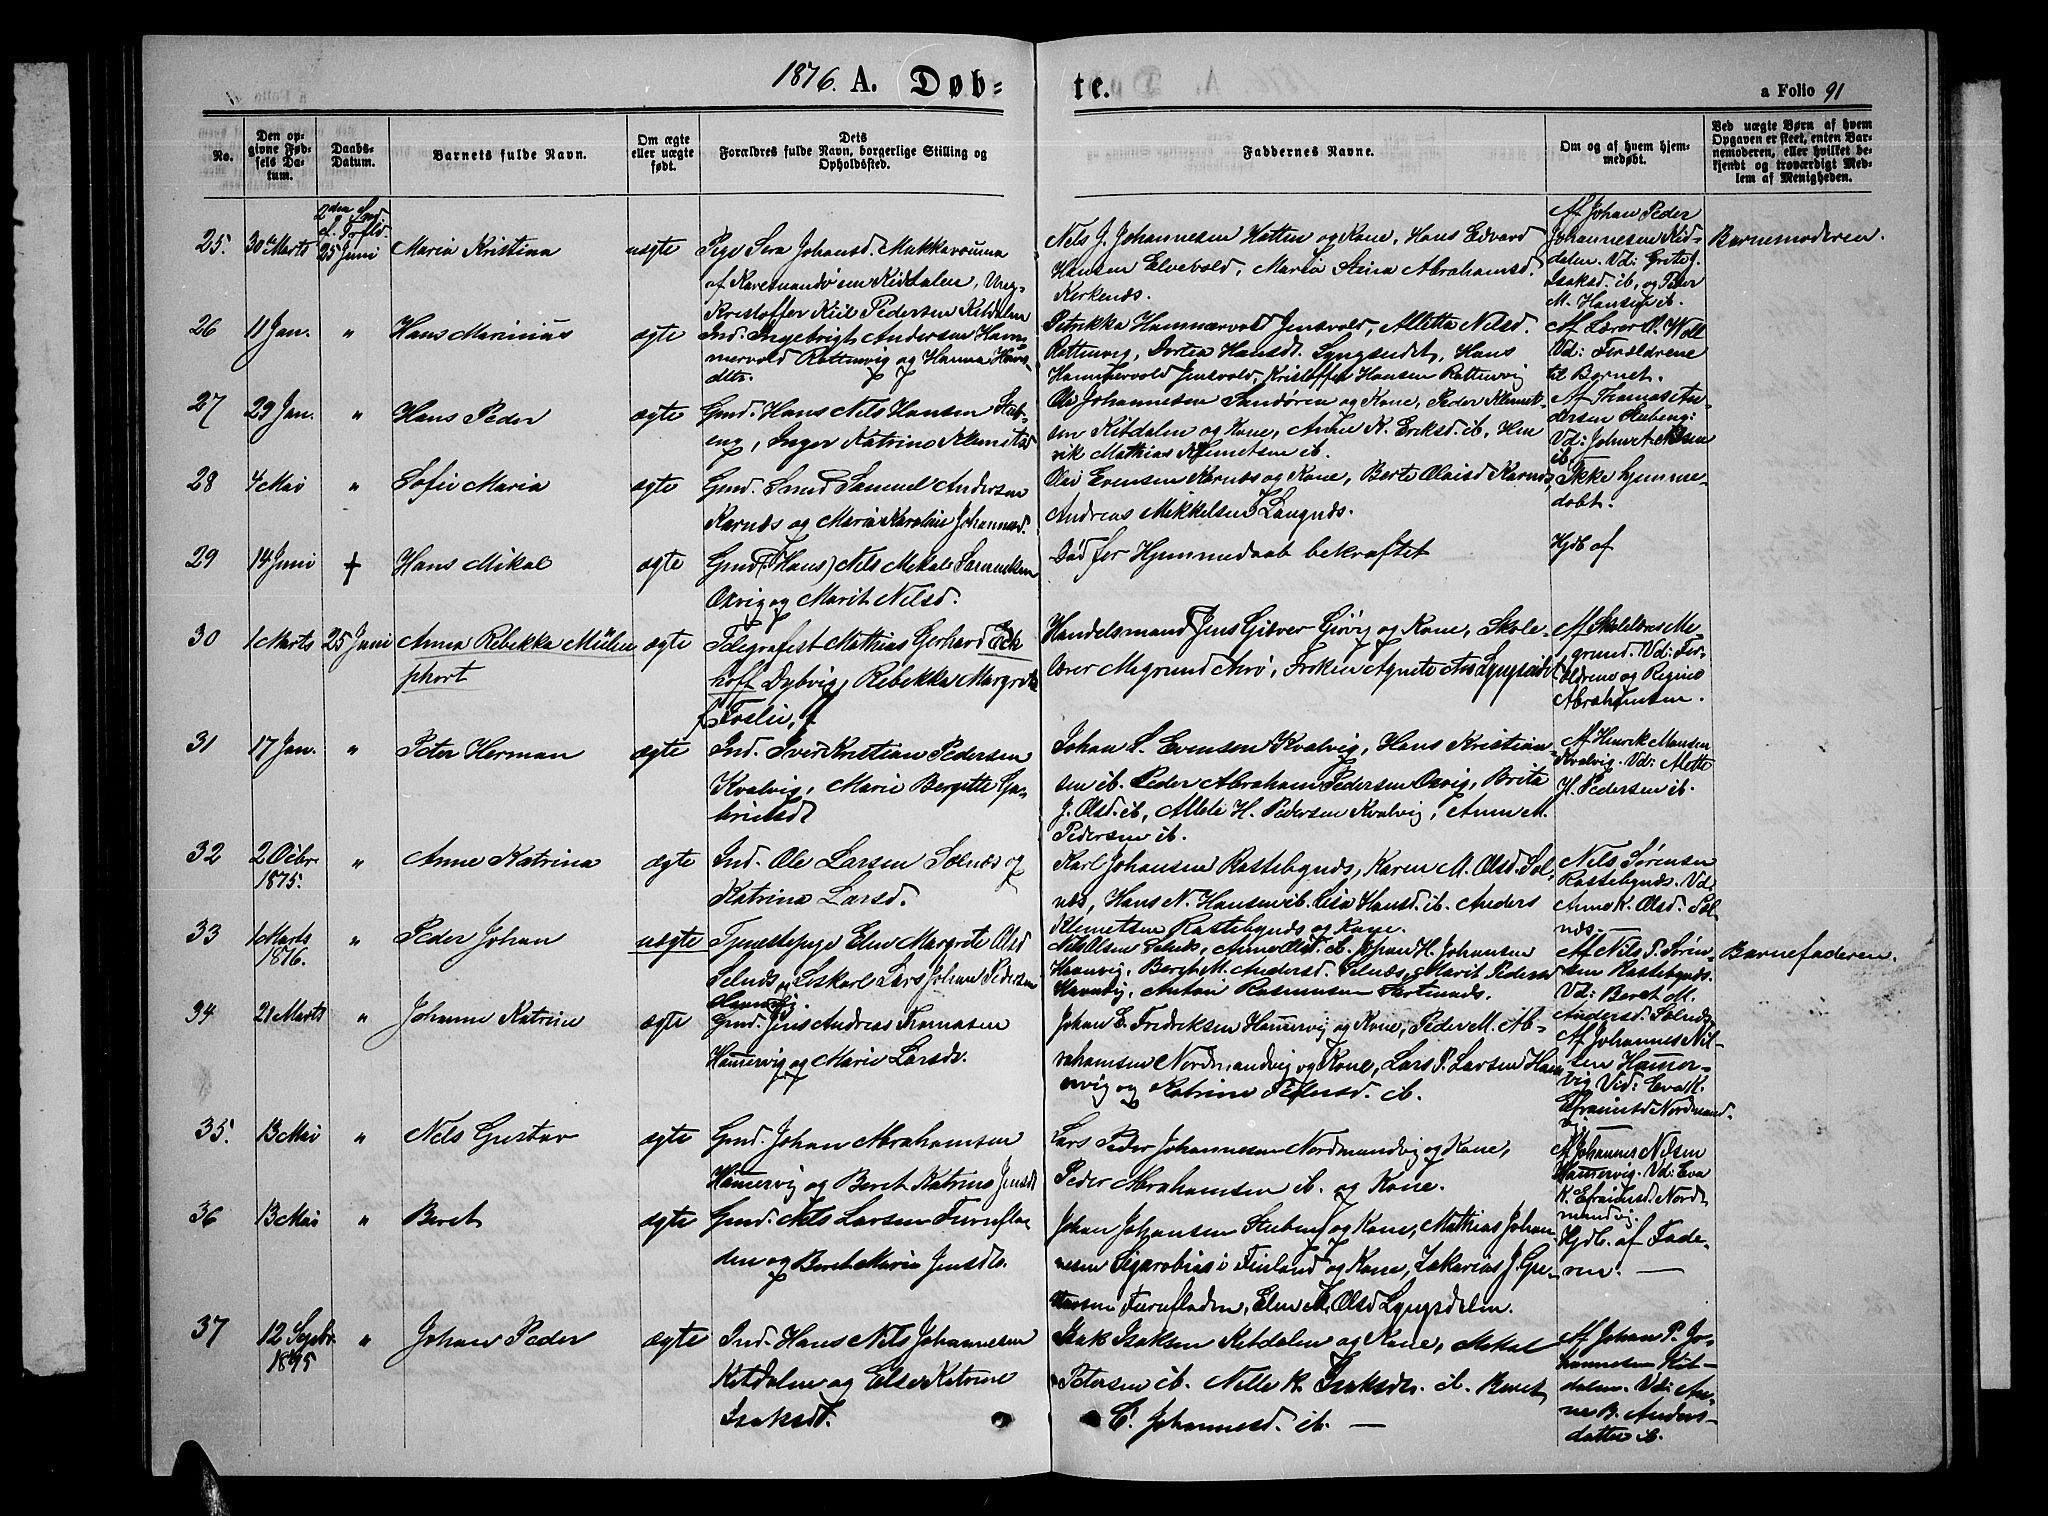 1876. A. Døb= te. a Folio 91
No.
Den opgivne Fødsels Datum.
Daabs-Datum.
Barnets fulde Navn.
Om ægte eller uægte født.
Dets Forældres fulde Navn, borgerlige Stilling og Opholdssted.
Faddernes Navne.
Om og af hvem hjemmedøbt.
Ved uægte Børn af hvem Opgaven er skeet, enten Barnemoderen, eller hvilket bekjendt og troværdigt Medlem af Menigheden.
25. 30te Marts 25 Juni Maria Kristina uægte
Pige Sva Johansd. Makkavouma
af Karesuando em Kitdalen, Ung-
Kristoffer Kiil Pedersen Kitdalen
Nels J. Johannesen Hatten og Kone, Hans Edvard
Hansen Elvebold, Maria Stina Abrahamsd.
Kerkenæs.
Af Johan Peder
Johannesen Kid-
dalen. Vd: Grite J.
Isaksd. ib, og Peder
M. Hansen ib.
Barnemoderen.
26 11 Jan. " Hans Marinius ægte
Ind. Ingebrigt Andersen Ham-
mervold Rottenvig og Hanna Hans-
dtr.
Petrikka Hammervold Jensvold, Alletta Nilsd.
Rottenvig, Dortea Hansdt. Lyngseidet, Hans
Hammervold Jensvold, Kristoffer Hansen Rottenvig
Af Lærer O. Woll
Vd: Forældrene
til Barnet.
27 29 Jan. " Hans Peder ægte
Gmd. Hans Nils Hansen Stub-
eng, Inger Katrine Klemetsd
Ole Johannesen Sandøren og Kone, Peder Klemet-
sen Kitdalen og Kone, Anne K. Eriksd. ib, Hen
rik Mathias Klemetsen ib.
Af Thomas An-
dersen Stubeng:
ib.
28 4 Mai " Sofie Maria ægte
Gmd. Samuel Andersen
Karnæs og Maria Karoline Johannesd.
Ole Evensen Karnæs og Kone, Berte Olaisd Karnæs,
Andreas Mikkelsen Langnæs.
Ikke hjemme-
døbt.
29 14 Juni + Hans Mikal ægte
Gmd. (Hans) Nils Mekal Samuelsen
Oxvig og Marit Nilsd.
Død før Hjemmedaab bekræftet
Hjdb af
30 1 Marts 25 Juni Anna Rebekka Mülen ægte
phort
Telegrafest Mathias Gerhard Eck
hoff Dybvig, Rebekka Margrete
Foslie,
Handelsmand Jens Giæver Giøvig og Kone, Skole-
lærer Megrund Aarø, Frøken Agnete Aas Lyngseidet
Af Skolelærer Me-
grund. Vd: For-
ældrene og Regine
Abrahamsen.
31 17 Jan. " Peter Herman ægte
Ind. Iver Kristian Pedersen
Kvalvig, Marie Bergitte Ga-
brielsd
Johan S. Evenson Kvalvig, Hans Kristian-
sen ib. Peder Abraham Pedersen Oxvig, Brita
J. Olsd. ib, Allete H. Pedersen Kvalvig, Anne M.
Pedersen ib.
Af Henrik Monsen
Kvalvig. Vd: Alette
H. Pedersen ib.
32 2 Octbr. " Anne Katrina ægte
1875.
Ind. Ole Larsen Solnæs og
Katrina Larsd.
Karl Johansen Rastebynæs, Karen M. Olsd. Sol-
næs, Hans N. Hansen ib. Lisa Hansd. ib. Anders
Klemetsen Rastebynæs og Kone.
Nels Sørensen
Rastebynæs. Vd:
Anne K. Olsd. Sol-
næs.
33 1 Marts " Peder Johan uægte
1876.
Tjenestepige Elen Margrete Olsd
Solnæs og Løskarl Lars Johan Pedersen
Havnvig.
Nils Olsen ib, Anne Olsd. ib. Johan H. Johansen
Havnvig, Beret M. Andersd. Solnæs, Marit Pedersd
Havnvig, Anton Rasmusen Sortenæs.
Af Nils P. Søren-
sen Rastebynæs.
Vd: Beret M.
Andersd. Solnæs
Barnefaderen.
34 21 Marts " Johanne Katrine ægte
Gmd. Jens Andreas Tomasen
Hamervig og Marie Larsdr.
Johan E. Fredriksen Hamervig og Kone, Peder M. Ab-
rahamsen Nordmandvig og Kone, Lars P. Larsen Ham
ervig og Katrine Pedersd. ib.
Af Johannes Nil-
sen Hamer-
vig Vid: Eva K.
Efraimsd Nordmand-
vig.
35. 13 Mai " Nels Gustav ægte
Gmd. Johan Abrahamsen
Hamervig og Beret Katrine Jensdt
Lars Peder Johannesen Nordmandvig og Kone,
Peder Abrahamsen ib. og Kone.
Af Johannes Nilsen
Hamervig. Vd: Eva
K. Efraimsd. Nord-
mandvig.
36 13 Mai " Beret ægte
Gmd. Nels Larsen Furuefla
den og Beret Maria Jensdtr.
Johan Johansen Stubeng og Kone, Mathias Johan-
nesen Sigarobias i Finland og Kone, Zakarias J. Gre-
Furufladen, Elen M. Olsd Lyngsdalen.
Hjdb. af Fade-
ren. —
37 12 Septbr. " Johan Peder ægte
1875
Ind. Hans Nils Johannesen
Kitdalen og Else Katrine
Isaksdt.
Isak Isaksen Kitdalen og Kone, Mekal
Petersen ib. Nille K. Isaksdr. ib. Beret
C. Johannesd. ib. —
Af Johan P. Jo-
hannesen Kit-
dalen. Vd: An-
ne B. Anders-
datter ib.